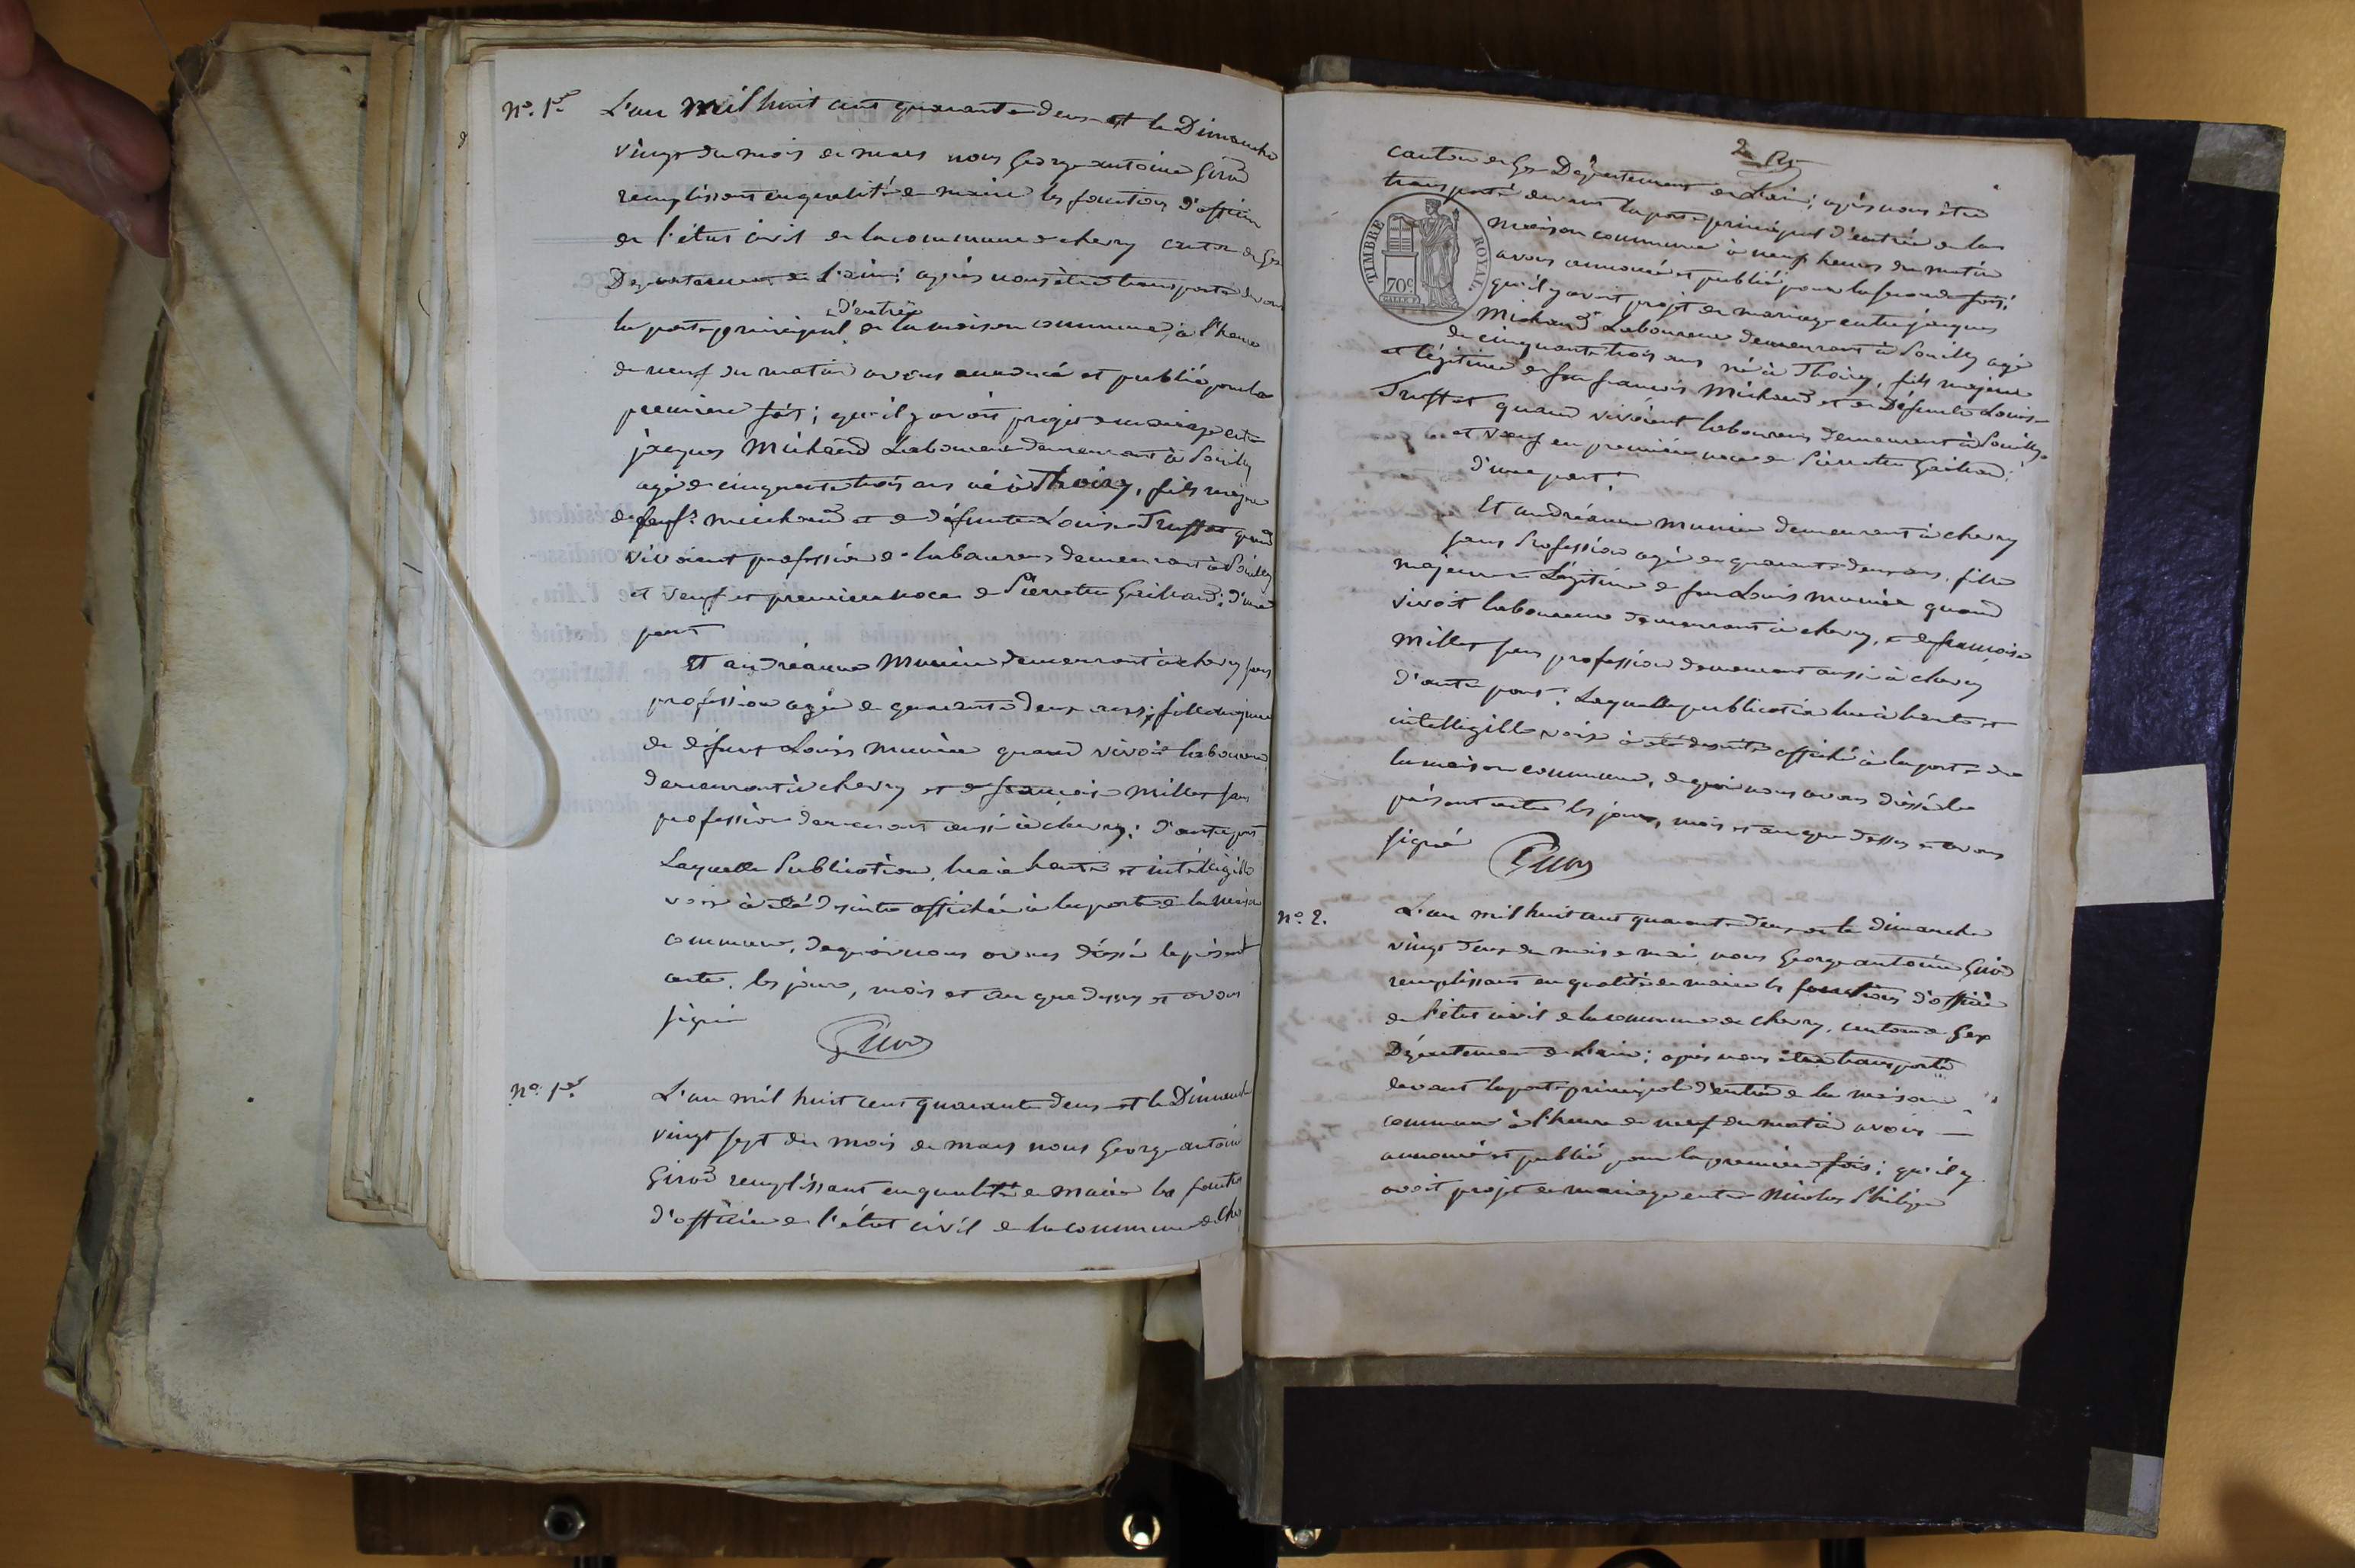 N°. 1er
L'an mil huit cent quarante deux et le Dimanche
vingt du mois de mars nous George antoine Girod
remplissant en qualité de maire les fonctions d'officier
de l'état civil de la commune de chevry canton de Gex
Département de l'ain; après nous être transporté devant
la porte principal d'entrée de la maison commune, à l'heure
de neuf du matin avons annoncé et publié pour la
première fois; qu'il y avoit projet de mariage entre
jacques Michaud Laboureur demeurant à Pouilly
agé de cinquante trois ans né à Thoiry, fils majeur
de feu fs. michaud et de défunte Louise Truffet quand
vivoient profession de laboureurs demeurant à Pouilly
et veuf en premiere noce de Pierrette Gaillard; d'une
part
Et andréanne Munier demeurant à chevry sans
profession agée de quarante deux ans; fille majeure
de défunt Louis Munier quand vivoit laboureur
demeurant à chevry et de françoise Millet sans
profession demeurant aussi à chevry; d'autre part
Laquelle Publication, lue à haute et intelligible
voix à été de suite affichée à la porte de la maison
commune, de quoi nous avons dressé le présent
acte, les jour, mois et an que dessus et avons
signé
Girod
N°. 1er
L'an mil huit cent quarante deux et le Dimanche
vingt sept du mois de mars nous George antoine
Girod remplissant en qualité de maire les fonctions
d'officier de l'état civil de la commune de Che
2
canton de Gex Département de L'ain; après nous être
transporté devant la porte principal d'entrée de la
maison commune à neuf heures du matin
avons annoncé et publié pour la seconde fois;
qu'il y avoit projet de mariage entre jacques
Michaud Laboureur demeurant à Pouilly agé
de cinquante trois ans né à Thoiry, fils majeur
et légitime de feu françois Michaud et de Défunte Louise
Truffet quand vivoient laboureurs demeurant à Pouilly
et veuf en première noce de Pierrette Gaillard;
d'une part;
Et andréanne munier demeurant à chevry
sans Profession agée de quarante deux ans, fille
majeure Légitime de feu Louis munier quand
vivoit laboureur demeurant à chevry, et de françoise
Millet sans profession demeurant aussi à chevry
d'autre part; Laquelle publication lue à haute et
intelligible voix à été de suite affiché à la porte de
la maison commune, de quoi nous avons dressé le
présent acte les jour, mois et an que dessus et avons
signé
Girod
TIMBRE ROYAL
70c
N°. 2.
L'an mil huit cent quarante deux et le dimanche
vingt deux du mois de mai nous George antoine Girod
remplissant en qualité de maire les fonctions d'officier
de l'état civil de la commune de chevry, canton de Gex
Département de L'ain; après nous être transporté
devant la porte principal d'entrée de la maison
commune à l'heure de neuf du matin avons
annoncé et publié pour la première fois; qu'il y
avoit projet de mariage entre Nicolas Philippe